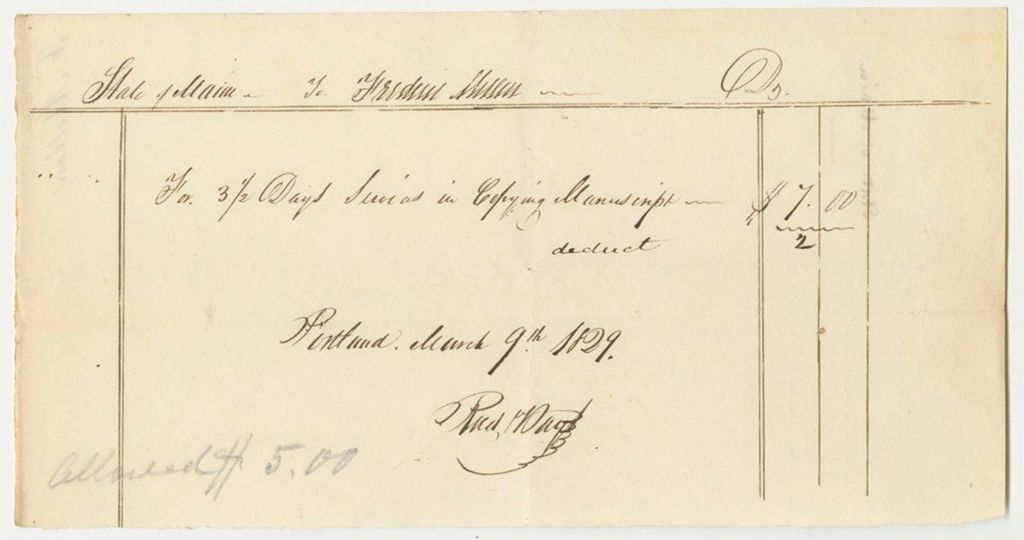 State of Maine To Frederic Mellen Dr.
For. 3 1/2 Days Servics in Copying Manuscript $ 7.00
deduct 2
Portland. March 9th 1829.
Recd. Pay
Allowed $ 5.00